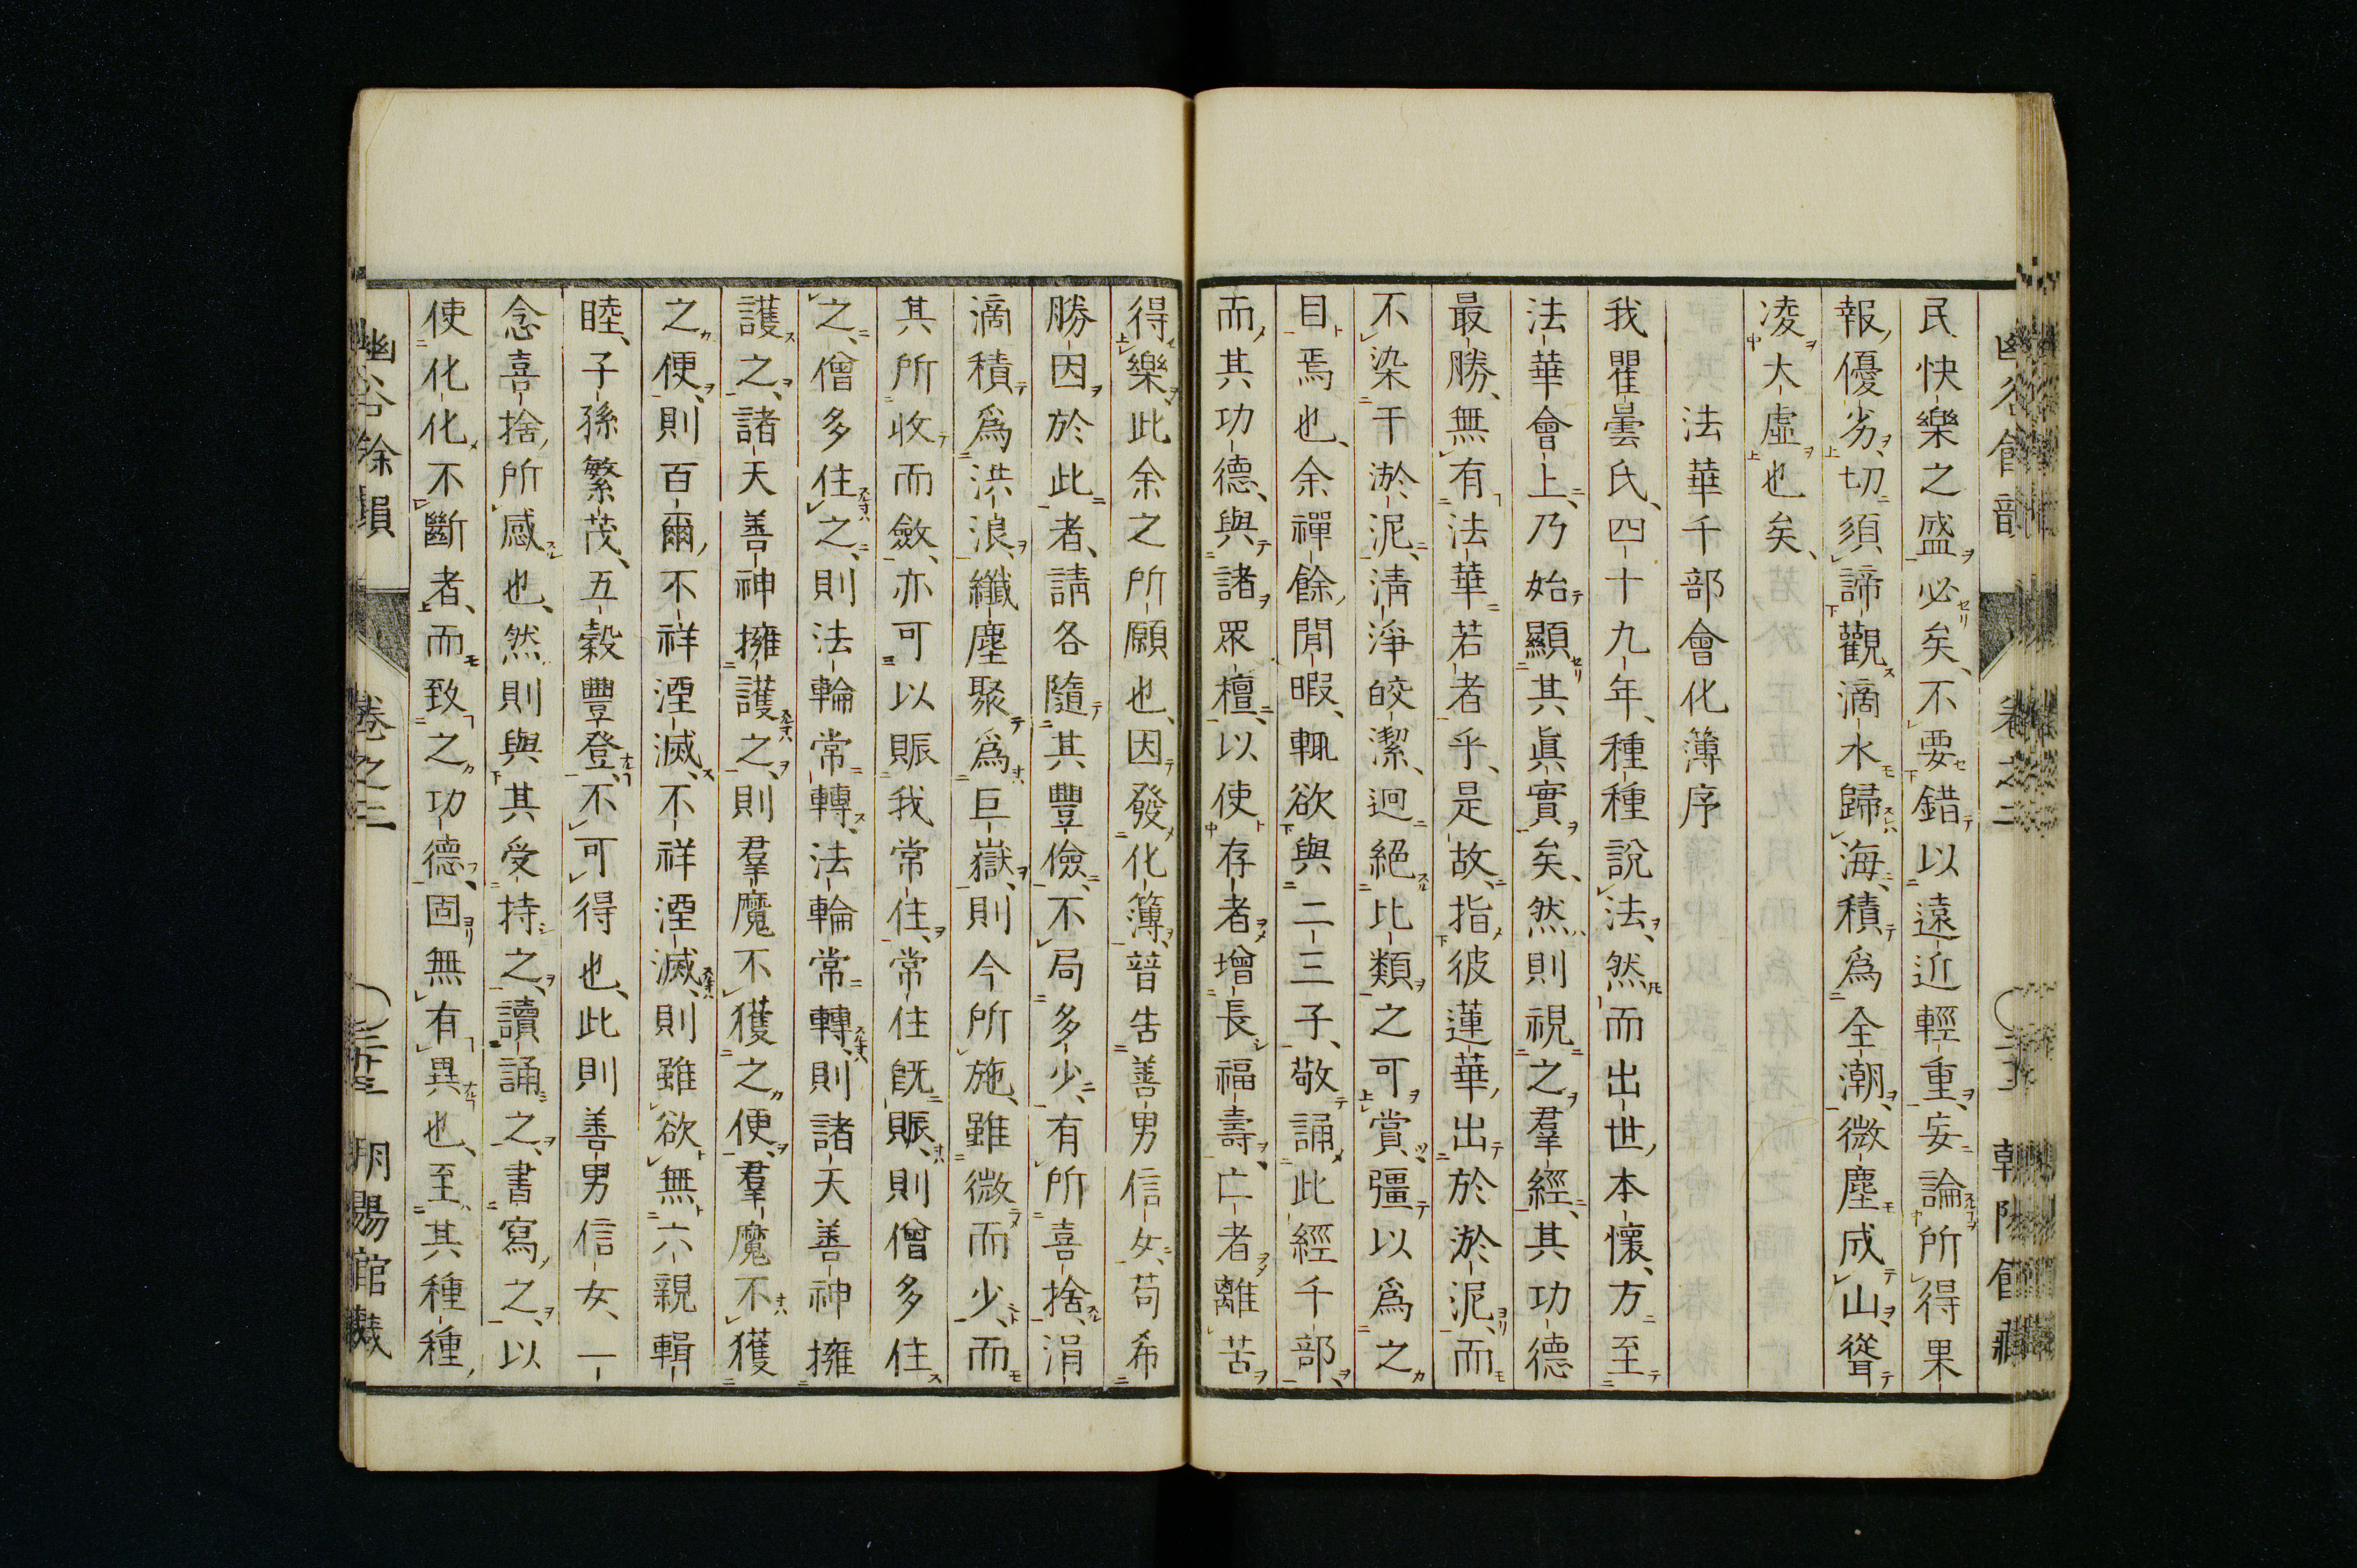 民快樂之盛必矣、不要錯以遠近輕重、妄論所得果
報優劣、切須諦觀滴水歸海、積爲全潮、微塵成山、聳
凌大虛也矣、
法華千部會化簿序
我瞿曇氏、四十九年、種種說法、然而出世本懷、方至
法華會上、乃始顯其眞實矣、然則視之羣經、其功德
最勝、無有法華若者乎、是故指彼蓮華、出於淤泥、而
不染干淤泥、淸淨皎潔、迥絕比類之可賞、彊以爲之
目焉也、余禪餘閒暇、輒欲與二三子、敬誦此經千部、
而其功德、與諸眾檀、以使存者增長福壽、亡者離苦
得樂、此余之所願也、因發化簿、普告善男信女、苟希
勝因於此者、請各隨其豐儉、不局多少、有所喜捨、涓
滴積爲洪浪、纖塵聚爲巨嶽、則今所施、雖微而少、而
其所收而斂、亦可以賑我常住、常住旣賑、則僧多住
之、僧多住之、則法輪常轉、法輪常轉、則諸天善神擁
護之、諸天善神擁護之、則羣魔不獲之便、羣魔不獲
之便、則百爾不祥湮滅、不祥湮滅、則雖欲無六親輯
睦、子孫繁茂、五穀豐登、不可得也、此則善男信女、一
念喜捨、所感也、然則與其受持之、讀誦之、書寫之、以
使化化不斷者、而致之功德、固無有異也、至其種種
幽谷餘韻 卷之二 朝陽館藏